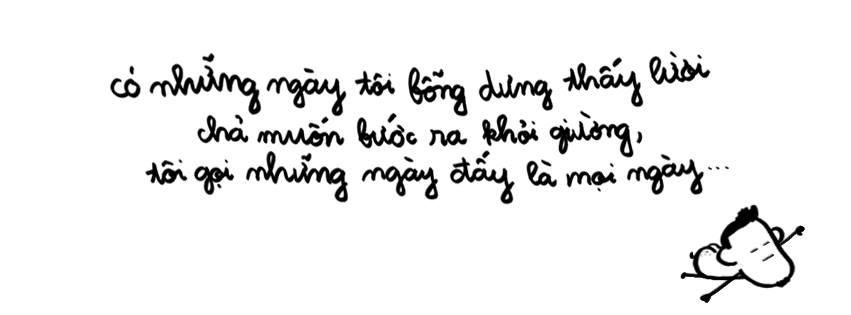 có những ngày tôi bỗng dưng thấy lười
chả muốn bước ra khỏi giường,
tôi gọi những ngày đấy là mọi ngày...